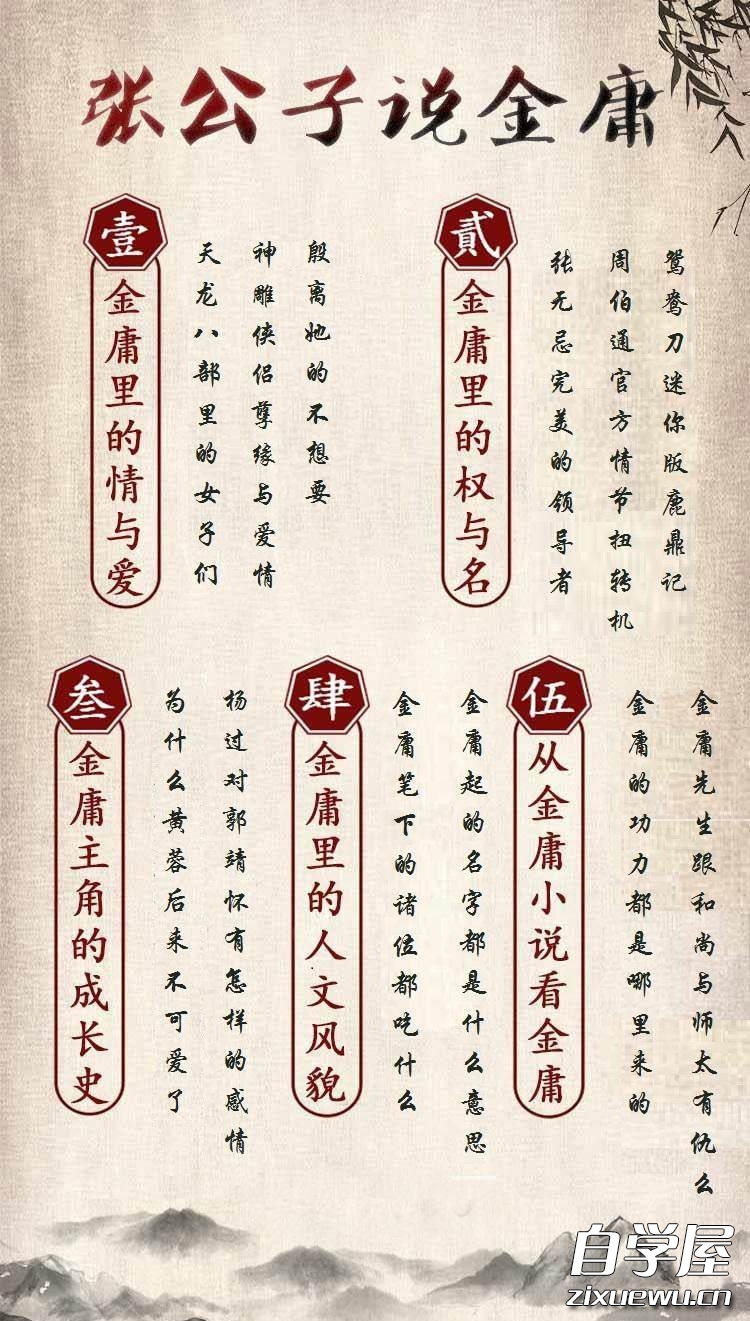 张公子说金庸
壹
金庸里的情与爱
天龙八部里的女子们
神雕侠侣孽缘与爱情
殷离她的不想要
貳
金庸里的权与名
张无忌完美的领导者
周伯通官方情节扭转机
鸳鸯刀迷你版鹿鼎记
叁
金庸主角的成长史
为什么黄蓉后来不可爱了
杨过对郭靖怀有怎样的感情
肆
金庸里的人文风貌
金庸笔下的诸位都吃什么
金庸起的名字都是什么意思
伍
从金庸小说看金庸
金庸的功力都是哪里来的
金庸先生跟和尚与师太有仇么
自学屋
zixuewu.cn